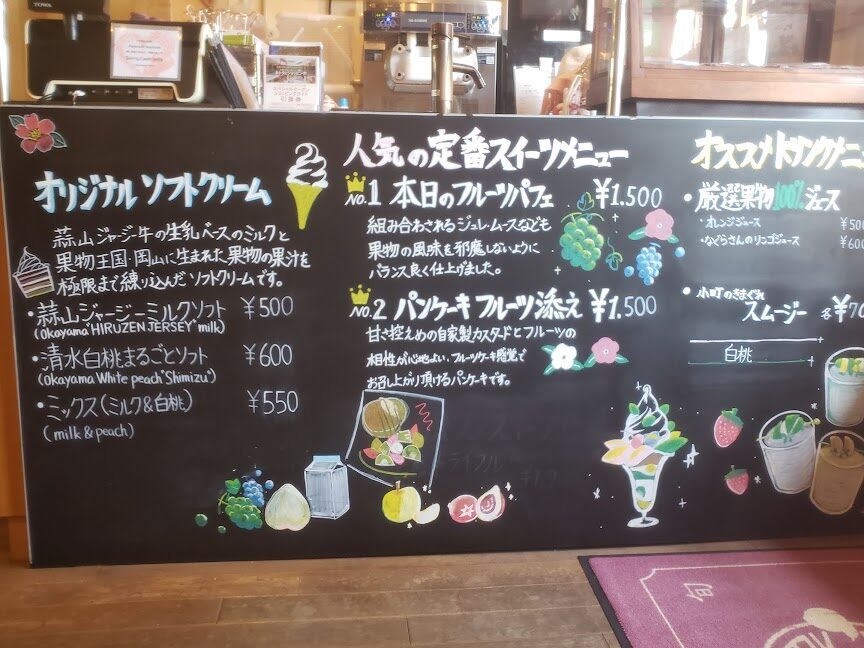 オリジナル ソフトクリーム
蒜山ジャージー牛の生乳ベースのミルクと
果物王国・岡山に生まれた果物の果汁を
極限まで練り込んだソフトクリームです。
・蒜山ジャージーミルクソフト ¥500
(Okayama "HIRUZEN JERSEY" milk)
・清水白桃まるごとソフト ¥600
(Okayama White peach "Shimizu")
・ミックス(ミルク&白桃) ¥550
(milk & peach)
人気の定番スイーツメニュー
No.1 本日のフルーツパフェ ¥1.500
組み合わされるジュレ・ムースなども
果物の風味を邪魔しないように
バランス良く仕上げました。
No.2 パンケーキ フルーツ添え ¥1.500
甘さ控えめの自家製カスタードとフルーツの
相性が心地よい、フルーツケーキ感覚で
お召し上がり頂けるパンケーキです。
オススメドリンクメニュ
・厳選果物100%ジュース
・オレンジジュース ¥500
・なぐらさんのリンゴジュース ¥600
・小町のきまぐれ
スムージー 各¥70
白桃
旬